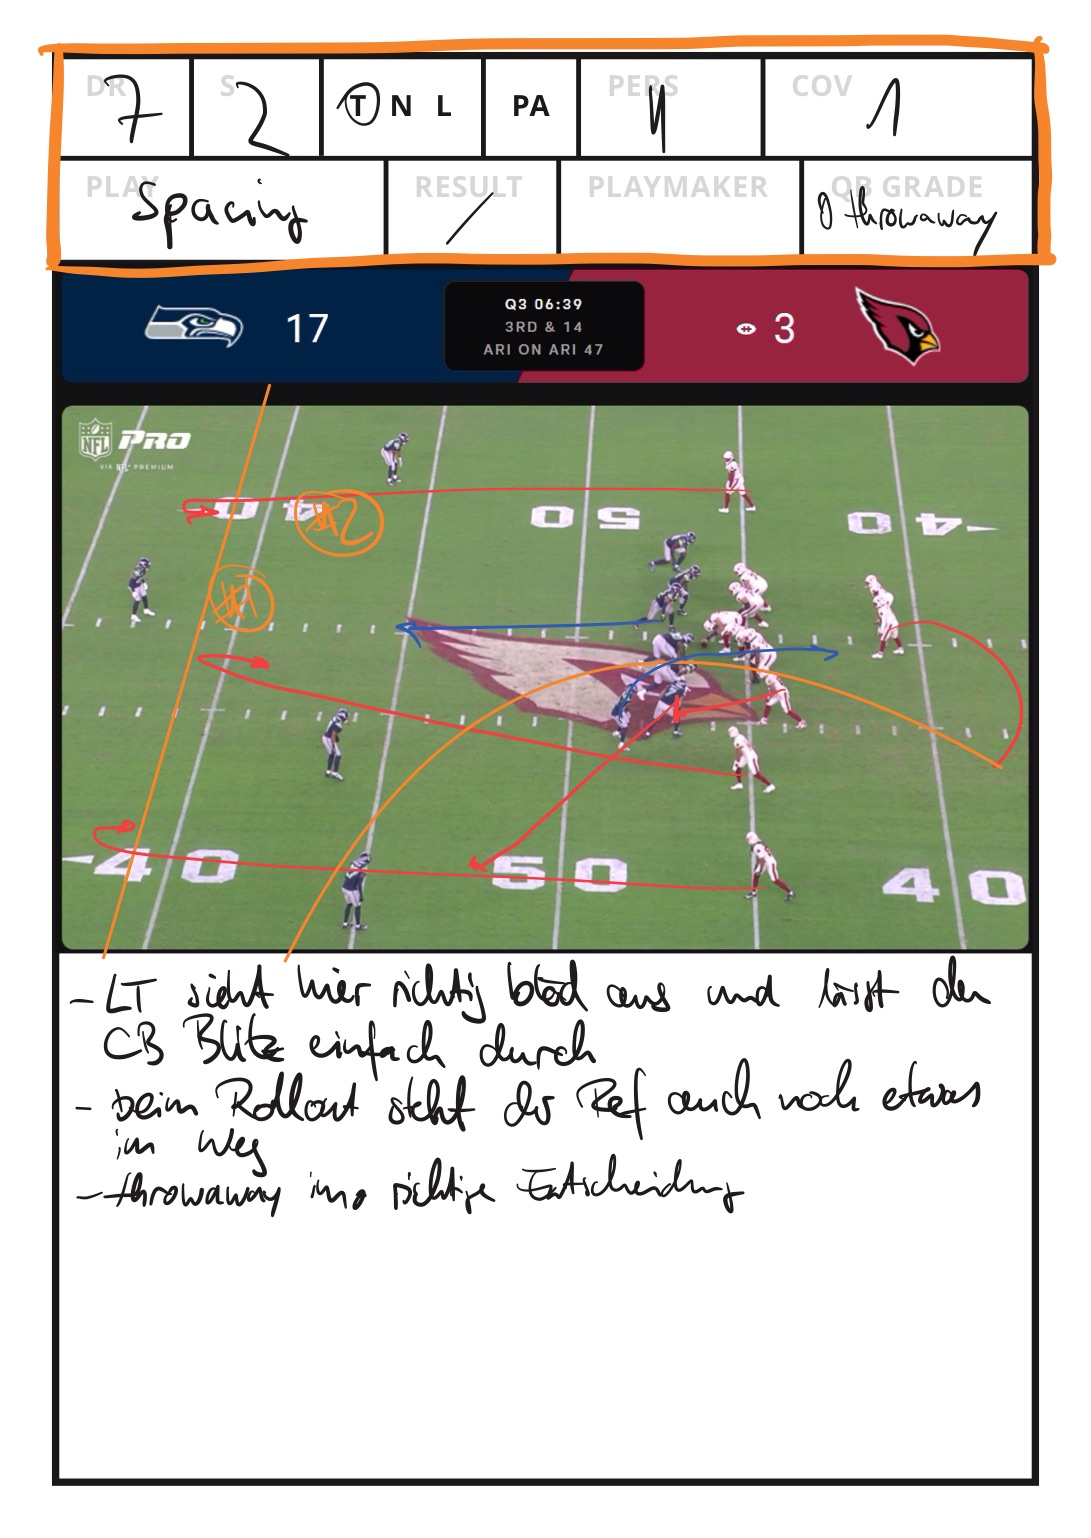 DR 7 S 2 T N L PA PERS 11 COV 1
PLAY Spacing RESULT / PLAYMAKER QB GRADE 0 throwaway
17 Q3 06:39 3
3RD & 14
ARI ON ARI 47
NFL PRO
VIA NFL+ PREMIUM
#2
#1
4 0 5 0 4 0
4 0 5 0 4 0
- LT sieht hier richtig blöd aus und lässt den
CB Blitz einfach durch
- beim Rollout steht der Ref auch noch etwas
im Weg
- throwaway imo richtige Entscheidung